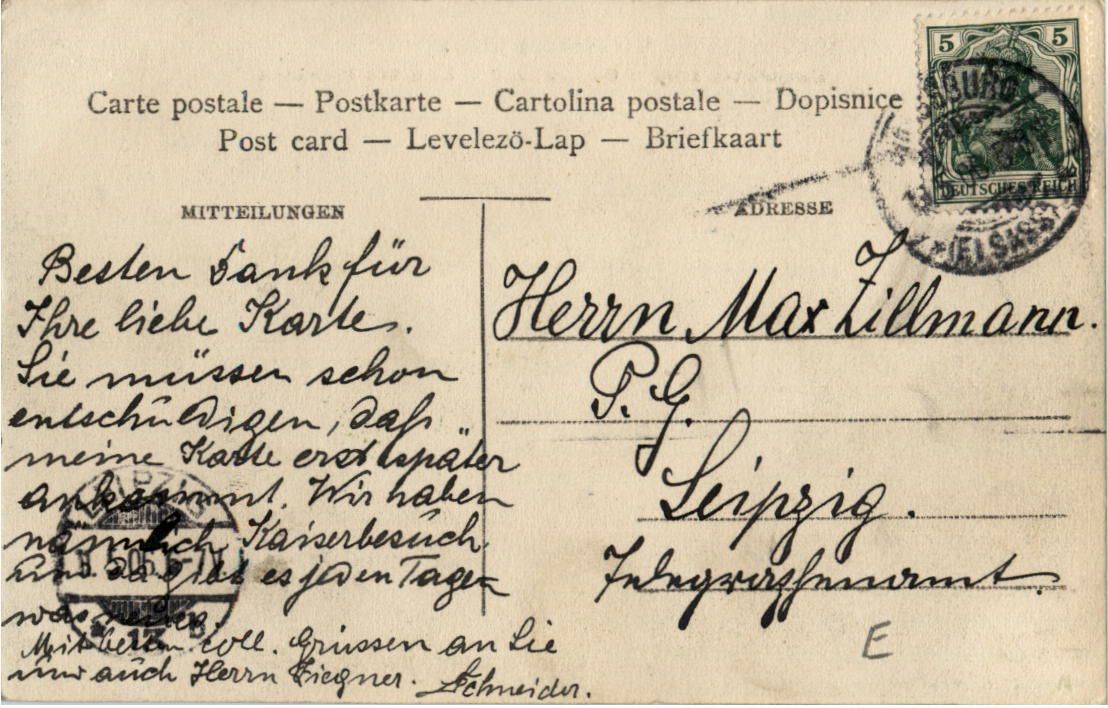 Carte postale — Postkarte — Cartolina postale — Dopisnice
Post card — Levelezö-Lap — Briefkaart
5 5
DEUTSCHES REICH
MITTEILUNGEN
Besten Dank für
Ihre liebe Karte.
Sie müssen schon
entschüldigen, daß
meine Karte erst später
ankommt. Wir haben
nämlich Kaiserbesüch,
und da gibt es jeden Tag
was neues.
Mit besten coll. Grüssen an Sie
und auch Herrn Ziegner. Schneider.
ADRESSE
Herrn Max Zillmann.
P. G.
Leipzig.
Telegraphenamt.
LEIPZIG
13 B
(ELSASS)
E